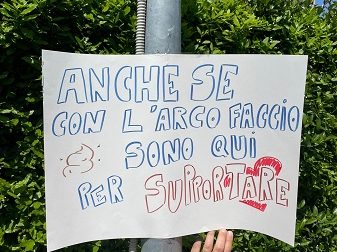 ANCHE SE
CON L'ARCO FACCIO
SONO QUI
PER SUPPORTARE